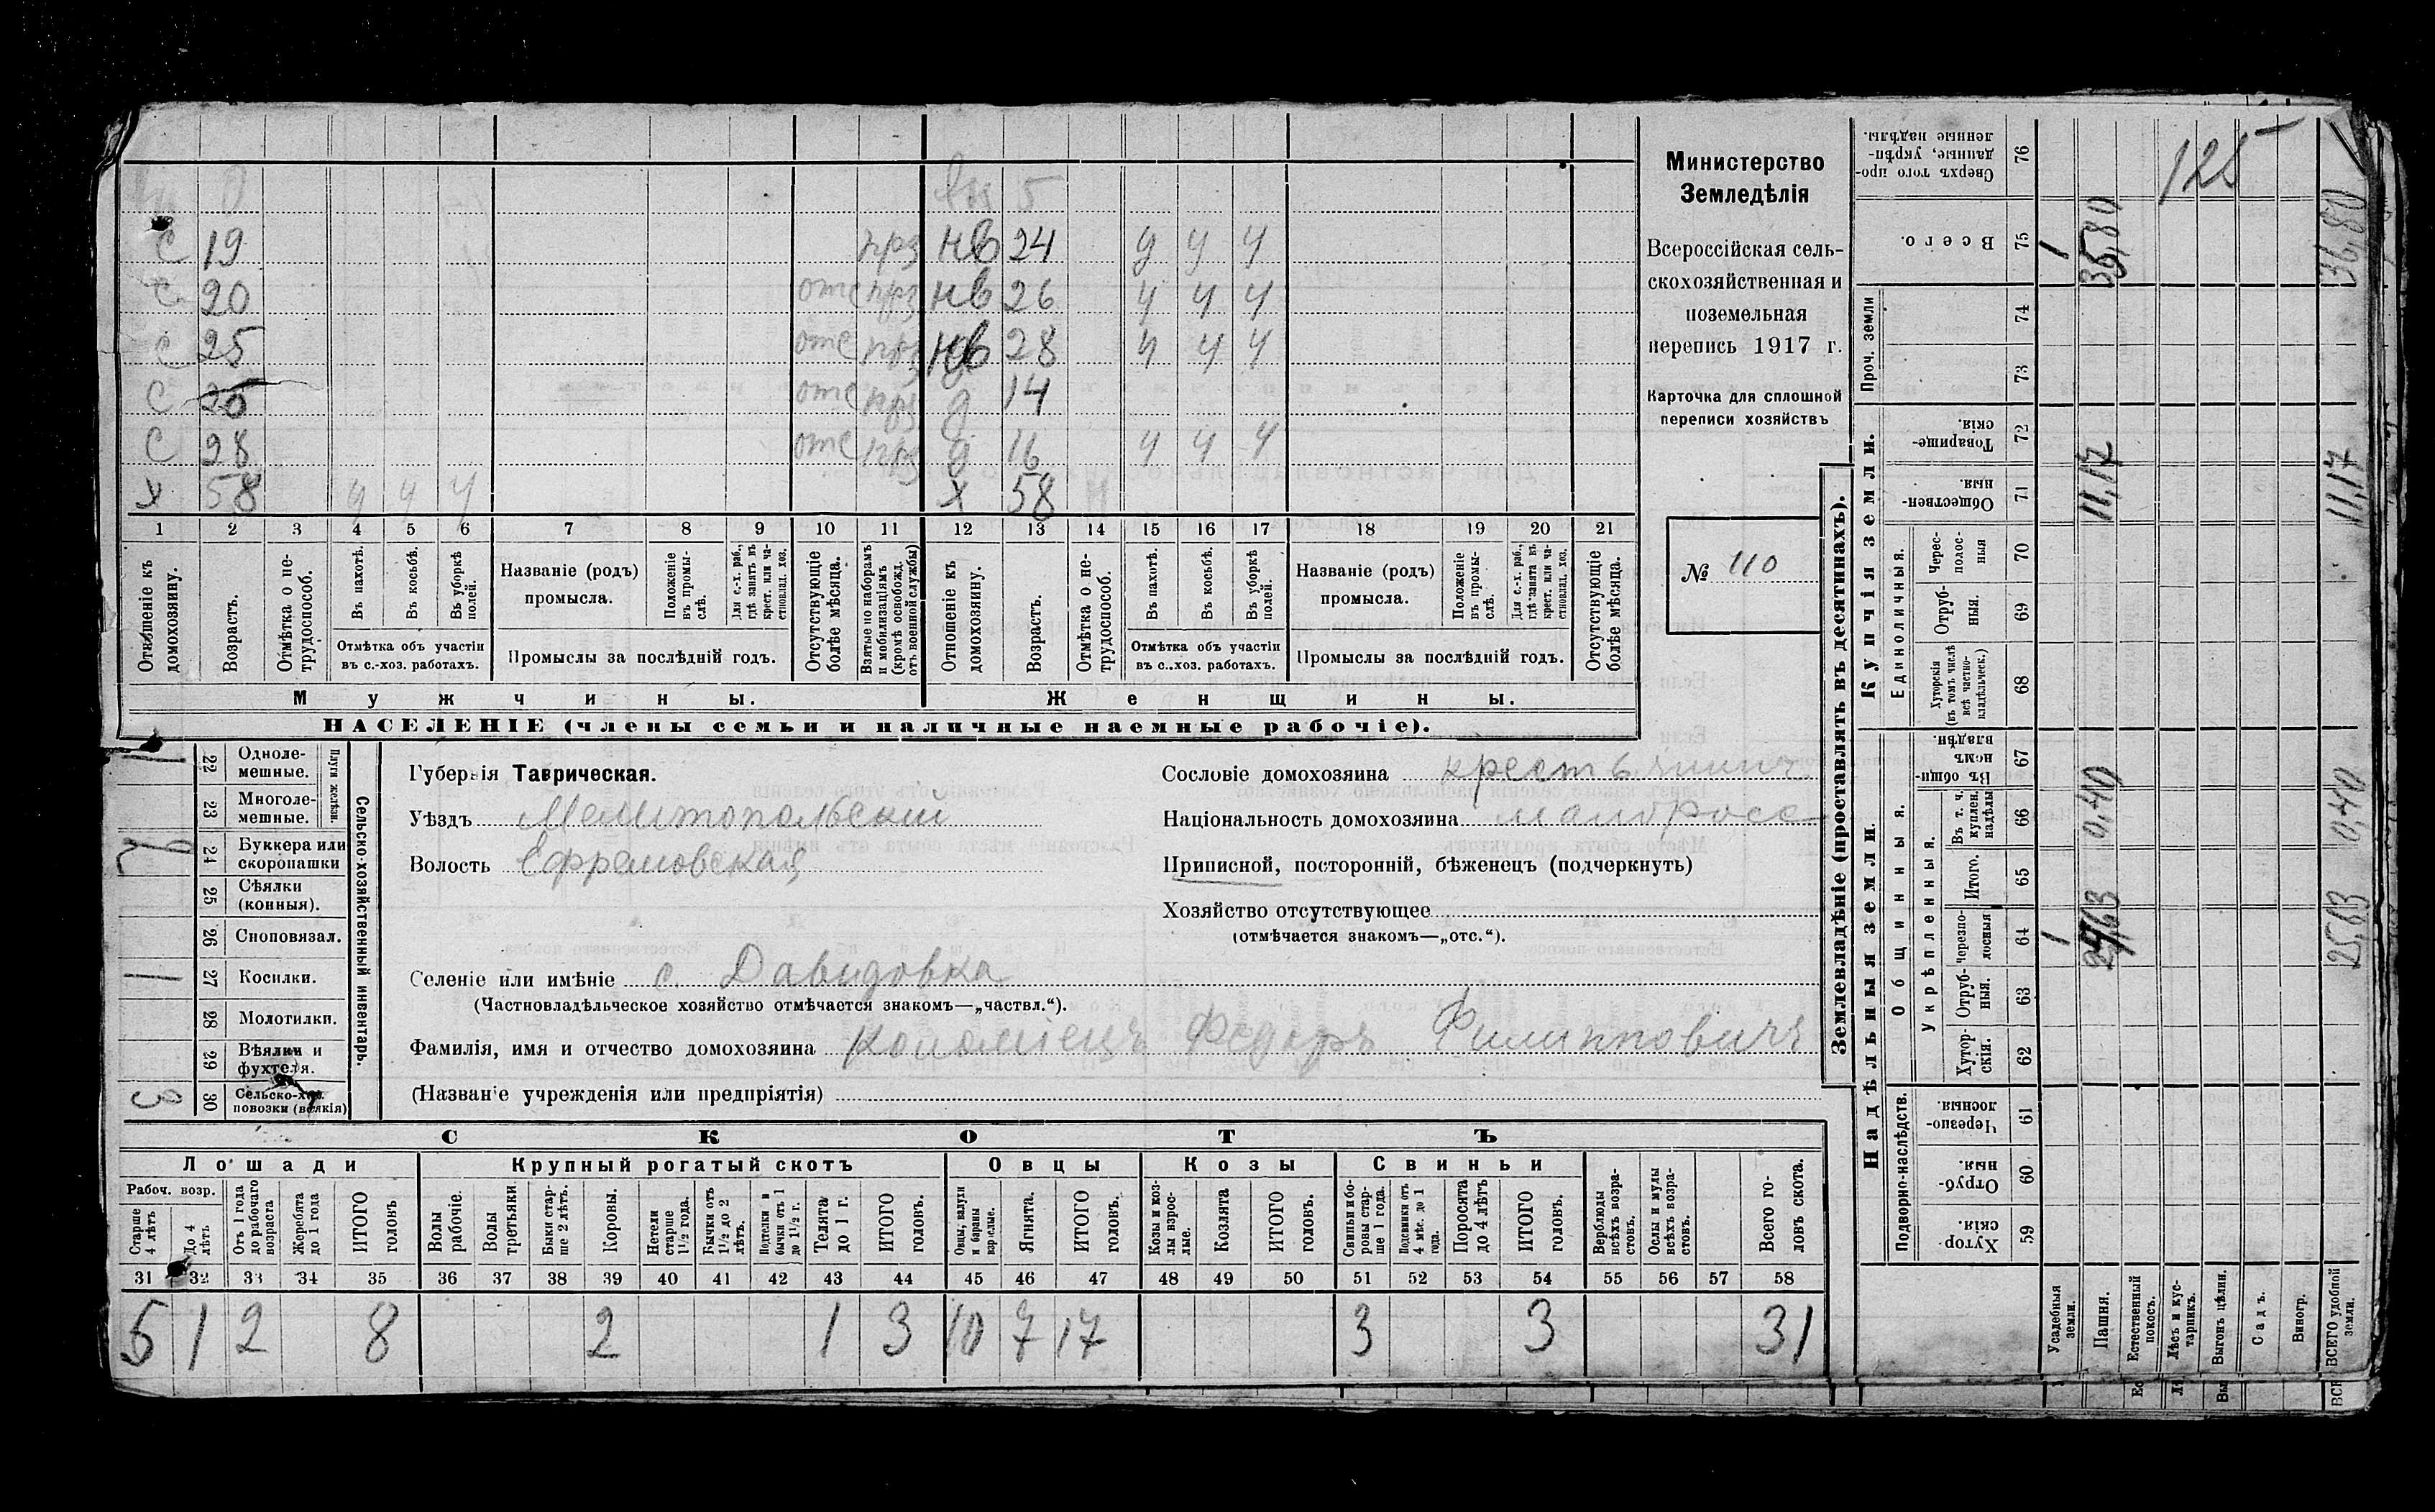 вн 0 вн 5
с 19 прз нв 24 ч ч ч
с 20 отс прз нв 26 ч ч ч
с 25 отс прз нв 28 ч ч ч
с отс прз д 14
с 28 отс прз д 16 ч ч ч
х 58 ч ч ч х 58
1 2 3 4 5 6 7 8 9 10 11 12 13 14 15 16 17 18 19 20 21
Отношеніе къ домохозяину.
Возрастъ.
Отмѣтка о нетрудоспособ.
Въ пахотѣ.
Въ косьбѣ.
Въ уборкѣ полей.
Отмѣтка объ участіи
въ с.-хоз. работахъ.
Названіе (родъ)
промысла.
Положеніе въ промыслѣ.
Для с.-х. раб., гдѣ занятъ въ крест. или частновлад. хоз.
Промыслы за послѣдній годъ.
Отсутствующіе болѣе мѣсяца.
Взятые по наборамъ и мобилизаціямъ (кромѣ освобожд. отъ военной службы)
Отношеніе къ домохозяину.
Возрастъ.
Отмѣтка о нетрудоспособ.
Въ пахотѣ.
Въ косьбѣ.
Въ уборкѣ полей.
Отмѣтка объ участіи
въ с.-хоз. работахъ.
Названіе (родъ)
промысла.
Положеніе въ промыслѣ.
Для с.-х. раб., гдѣ занята въ крест. или частновлад. хоз.
Промыслы за послѣдній годъ.
Отсутствующіе болѣе мѣсяца.
Мужчины. Женщины.
НАСЕЛЕНІЕ (члены семьи и наличные наемные рабочіе).
Министерство
Земледѣлія
Всероссійская сель-
скохозяйственная и
поземельная
перепись 1917 г.
Карточка для сплошной
переписи хозяйствъ
№ 110
Сельско-хозяйственный инвентарь.
Плуги желѣзн.
1 22 Одноле-
мешные.
23 Многоле-
мешные.
2 24 Буккера или
скоропашки
25 Сѣялки
(конныя).
26 Сноповязал.
1 27 Косилки.
28 Молотилки.
29 Вѣялки и
фухтеля.
3 30 Сельско-хоз.
повозки (всякія)
Губернія Таврическая.
Уѣздъ Мелитопольскій
Волость Ефремовская
Сословіе домохозяина крестьянинъ
Національность домохозяина малоросс
Приписной, посторонній, бѣженецъ (подчеркнуть)
Хозяйство отсутствующее
(отмѣчается знакомъ—„отс.“).
Селеніе или имѣніе с. Давидовка
(Частновладѣльческое хозяйство отмѣчается знакомъ—„частвл.“).
Фамилія, имя и отчество домохозяина Коломіецъ Федоръ Филипповичъ
(Названіе учрежденія или предпріятія)
СКОТЪ
Лошади Крупный рогатый скотъ Овцы Козы Свиньи
Рабоч. возр.
Старше 4 лѣтъ
До 4 лѣтъ
Отъ 1 года до рабочаго возраста
Жеребята до 1 года
ИТОГО головъ
Волы рабочіе.
Волы третьяки.
Быки старше 2 лѣтъ.
Коровы.
Нетели старше 1½ года.
Бычки отъ 1½ до 2 лѣтъ.
Подтелки и бычки отъ 1 до 1½ г.
Телята до 1 г.
ИТОГО головъ.
Овцы, валухи и бараны взрослые.
Ягнята.
ИТОГО головъ.
Козы и козлы взрослые.
Козлята
ИТОГО головъ.
Свиньи и боровы старше 1 года.
Подсвинки отъ 4 мѣс. до 1 года.
Поросята до 4 лѣтъ
ИТОГО головъ.
Верблюды всѣхъ возрастовъ.
Ослы и мулы всѣхъ возрастовъ.
Всего головъ скота.
31 32 33 34 35 36 37 38 39 40 41 42 43 44 45 46 47 48 49 50 51 52 53 54 55 56 57 58
5 1 2 8 2 1 3 10 7 17 3 3 31
Землевладѣніе (проставлять въ десятинахъ).
Купчія земли.
Надѣльныя земли.
Проч. земли
Единоличныя.
Общинныя.
Укрѣпленныя.
Подворно-наслѣдств.
Сверхъ того проданные, укрѣпленные надѣлы. 76
125
Всего. 75 1 35,80 36,80
74
73
Товарищескія. 72
Общественныя. 71 11,17 11,17
Чересполосныя 70
Отрубныя. 69
Хуторскія (въ томъ числѣ всѣ частновладѣльческ.) 68
Въ общинномъ владѣн. 67
Въ т. ч. куплен. надѣлы 66 0,40 0,40
Итого. 65
Черезполосныя 64 1 24,63 25,63
Отрубныя. 63
Хуторскія. 62
Черезполосныя. 61
Отрубныя. 60
Хуторскія 59
Усадебныя земли.
Пашня.
Естественный покосъ.
Лѣсъ и кустарникъ.
Выгонъ цѣлин.
Садъ.
Виногр.
ВСЕГО удобной земли.